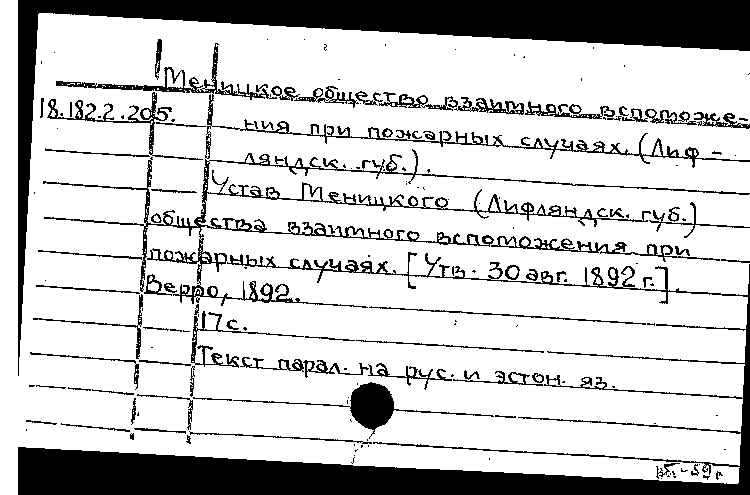 Меницкое общество взаимного вспоможе-
18.182.2.205.
ния при пожарных случаях. (Лиф-
ляндск. губ.).
Устав Меницкого (Лифляндск. губ.)
общества взаимного вспоможения при
пожарных случаях. [Утв. 30 авг. 1892 г.].
Верро, 1892.
17 с.
Текст парал. на рус. и эстон. яз.